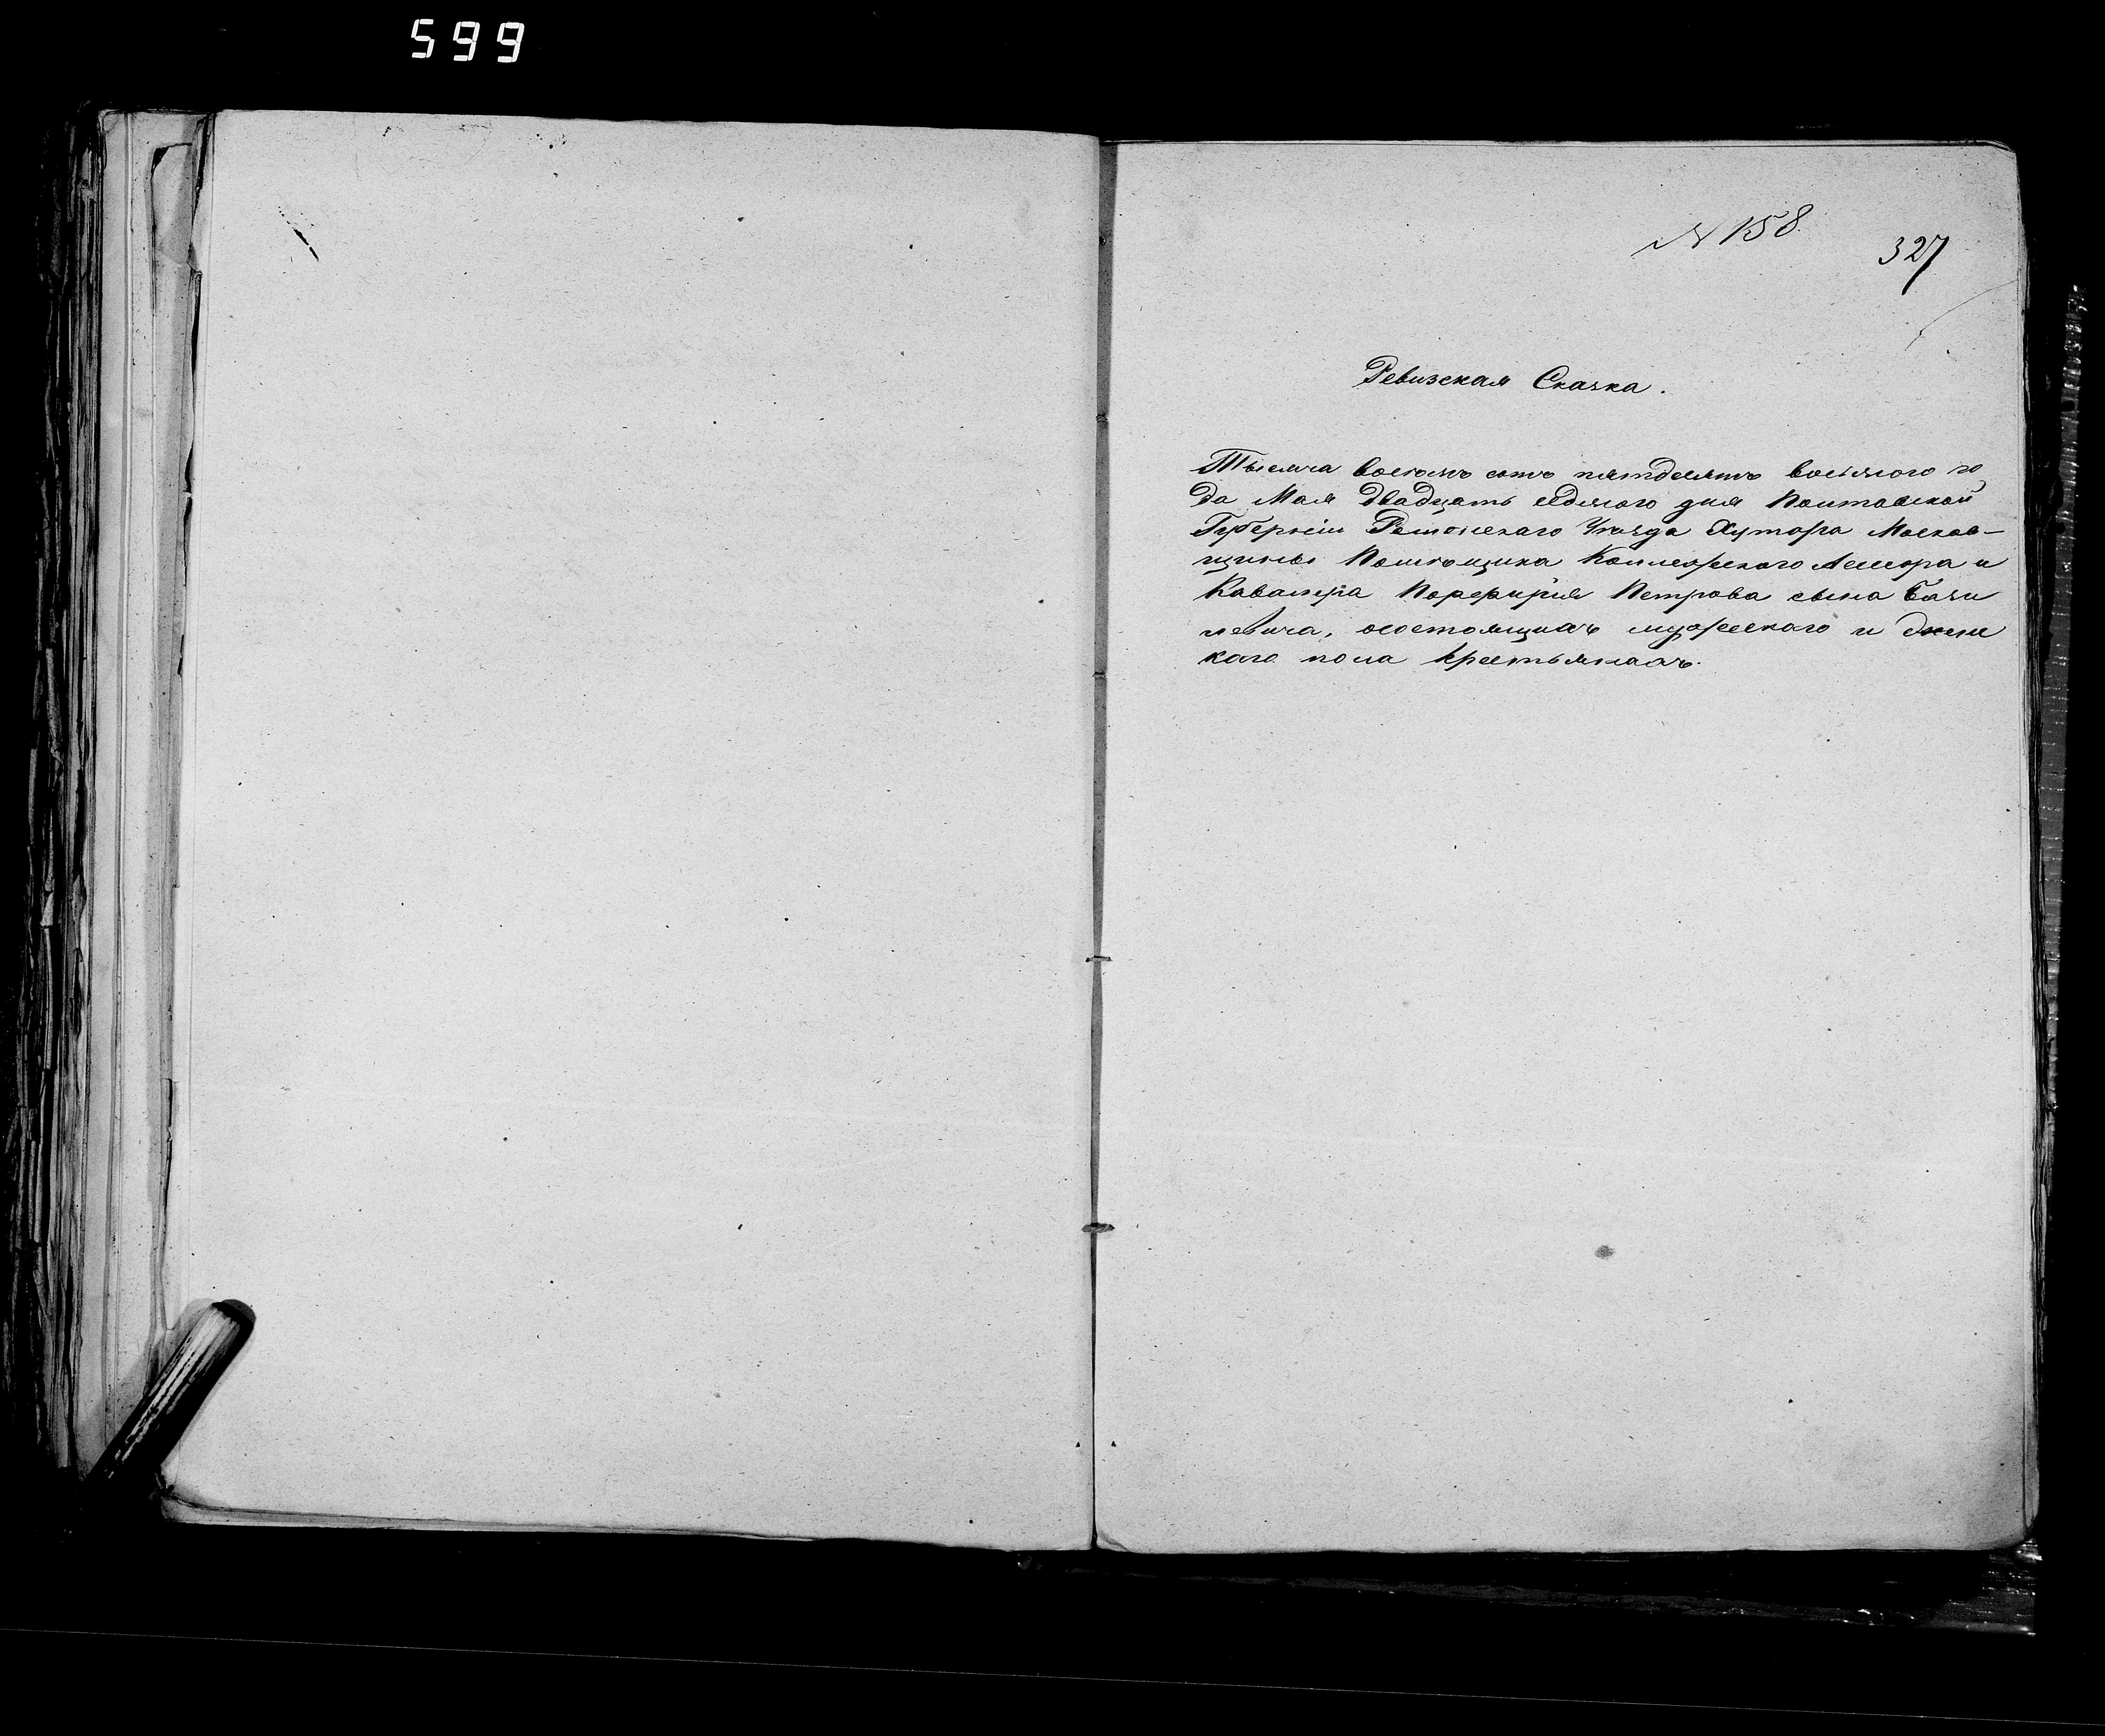 599
№ 158
327
Ревизская Сказка.
Тысяча восемь сотъ пятдесятъ восьмого го
да Мая двадцать седмого дня Полтавской
Губерніи Роменскаго Уѣзда Хутора Москов-
щины Помѣщика Коллежскаго Асессора и
Кавалера Порфирія Петрова сына Бази
левича, осостоящихъ мужескаго и женс
каго пола крестьянахъ.